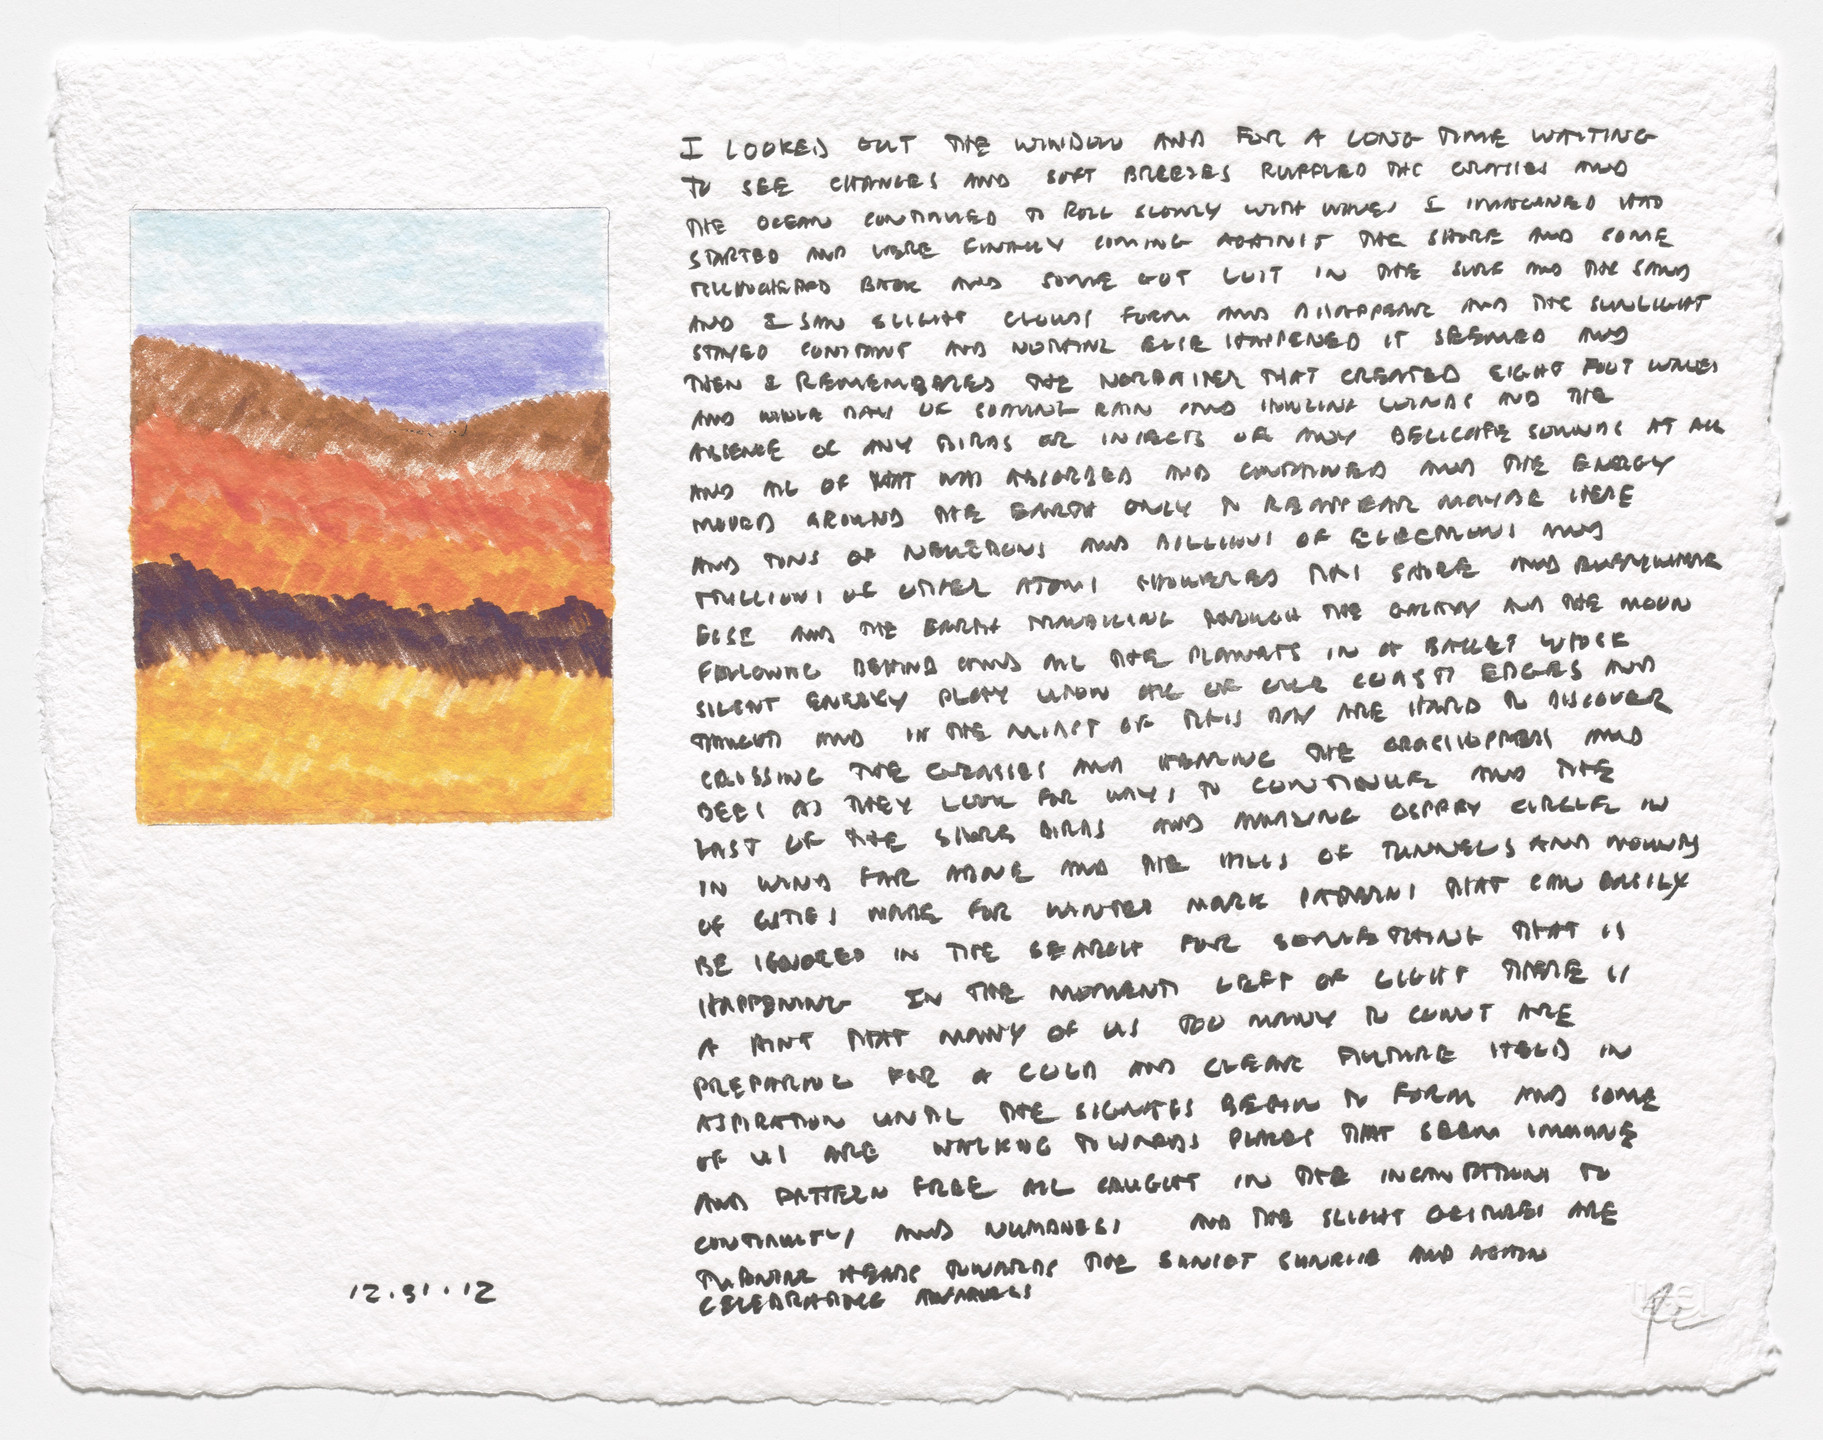 I LOOKED OUT THE WINDOW AND FOR A LONG TIME WAITING
TO SEE CHANGES AND SOFT BREEZES RUFFLED THE GRASSES AND
THE OCEAN CONTINUED TO ROLL SLOWLY WITH WAVES I IMAGINED HAD
STARTED AND WERE FINALLY COMING AGAINST THE SHORE AND SOME
BACK AND SOME GOT LOST IN THE SURF AND THE SAND
AND I SAW SLIGHT CLOUDS FORM AND DISAPPEAR AND THE SUNLIGHT
STAYED CONSTANT AND NOTHING ELSE HAPPENED IT SEEMED AND
THEN I REMEMBERED THE NOREASTER THAT CREATED EIGHT FOOT WAVES
AND WHOLE DAY OF RAIN AND HOWLING WINDS AND THE
ABSENCE OF ANY BIRDS OR INSECTS OR ANY DELICATE SOUNDS AT ALL
AND ALL OF THAT WAS ABSORBED AND CONTAINED AND THE ENERGY
MOVED AROUND THE EARTH ONLY TO REAPPEAR MAYBE HERE
AND TONS OF NEUTRONS AND BILLIONS OF ELECTRONS AND
TRILLIONS OF OTHER ATOMS SHOWERED THIS SHORE AND EVERYWHERE
ELSE AND THE EARTH TRAVELING THROUGH THE GALAXY AND THE MOON
FOLLOWING BEHIND AND ALL THE PLANETS IN A BALLET WHOSE
SILENT ENERGY PLAY UPON ALL OF OUR COASTS EDGES AND
THOUGHTS AND IN THE MIDST OF THIS DAY ARE HARD TO DISCOVER
CROSSING THE GRASSES AND HEARING THE GRASSHOPPERS AND
BEES AS THEY LOOK FOR WAYS TO CONTINUE AND THE
LAST OF THE SHORE BIRDS AND AMAZING OSPREY CIRCLE IN
IN WIND FAR ABOVE AND THE HILLS OF TUNNELS AND MOUNDS
OF CITIES MADE FOR WINTER MARK PATTERNS THAT CAN EASILY
BE IGNORED IN THE SEARCH FOR SOMETHING THAT IS
HAPPENING IN THE MOMENTS LEFT OF LIGHT THERE IS
A HINT THAT MANY OF US TOO MANY TO COUNT ARE
PREPARING FOR A COLD AND CLEAR FUTURE HELD IN
ASPIRATION UNTIL THE SIGNALS BEGIN TO FORM AND SOME
OF US ARE WALKING TOWARDS PLACES THAT SEEM IMMUNE
AND PATTERN FREE ALL CAUGHT IN THE INCANTATIONS TO
CONTINUITY AND NUMBNESS AND THE SLIGHT GESTURES ARE
TURNING HEADS TOWARDS THE SUNSET SUNRISE AND AGAIN
CELEBRATING ARRIVALS
12.31.12